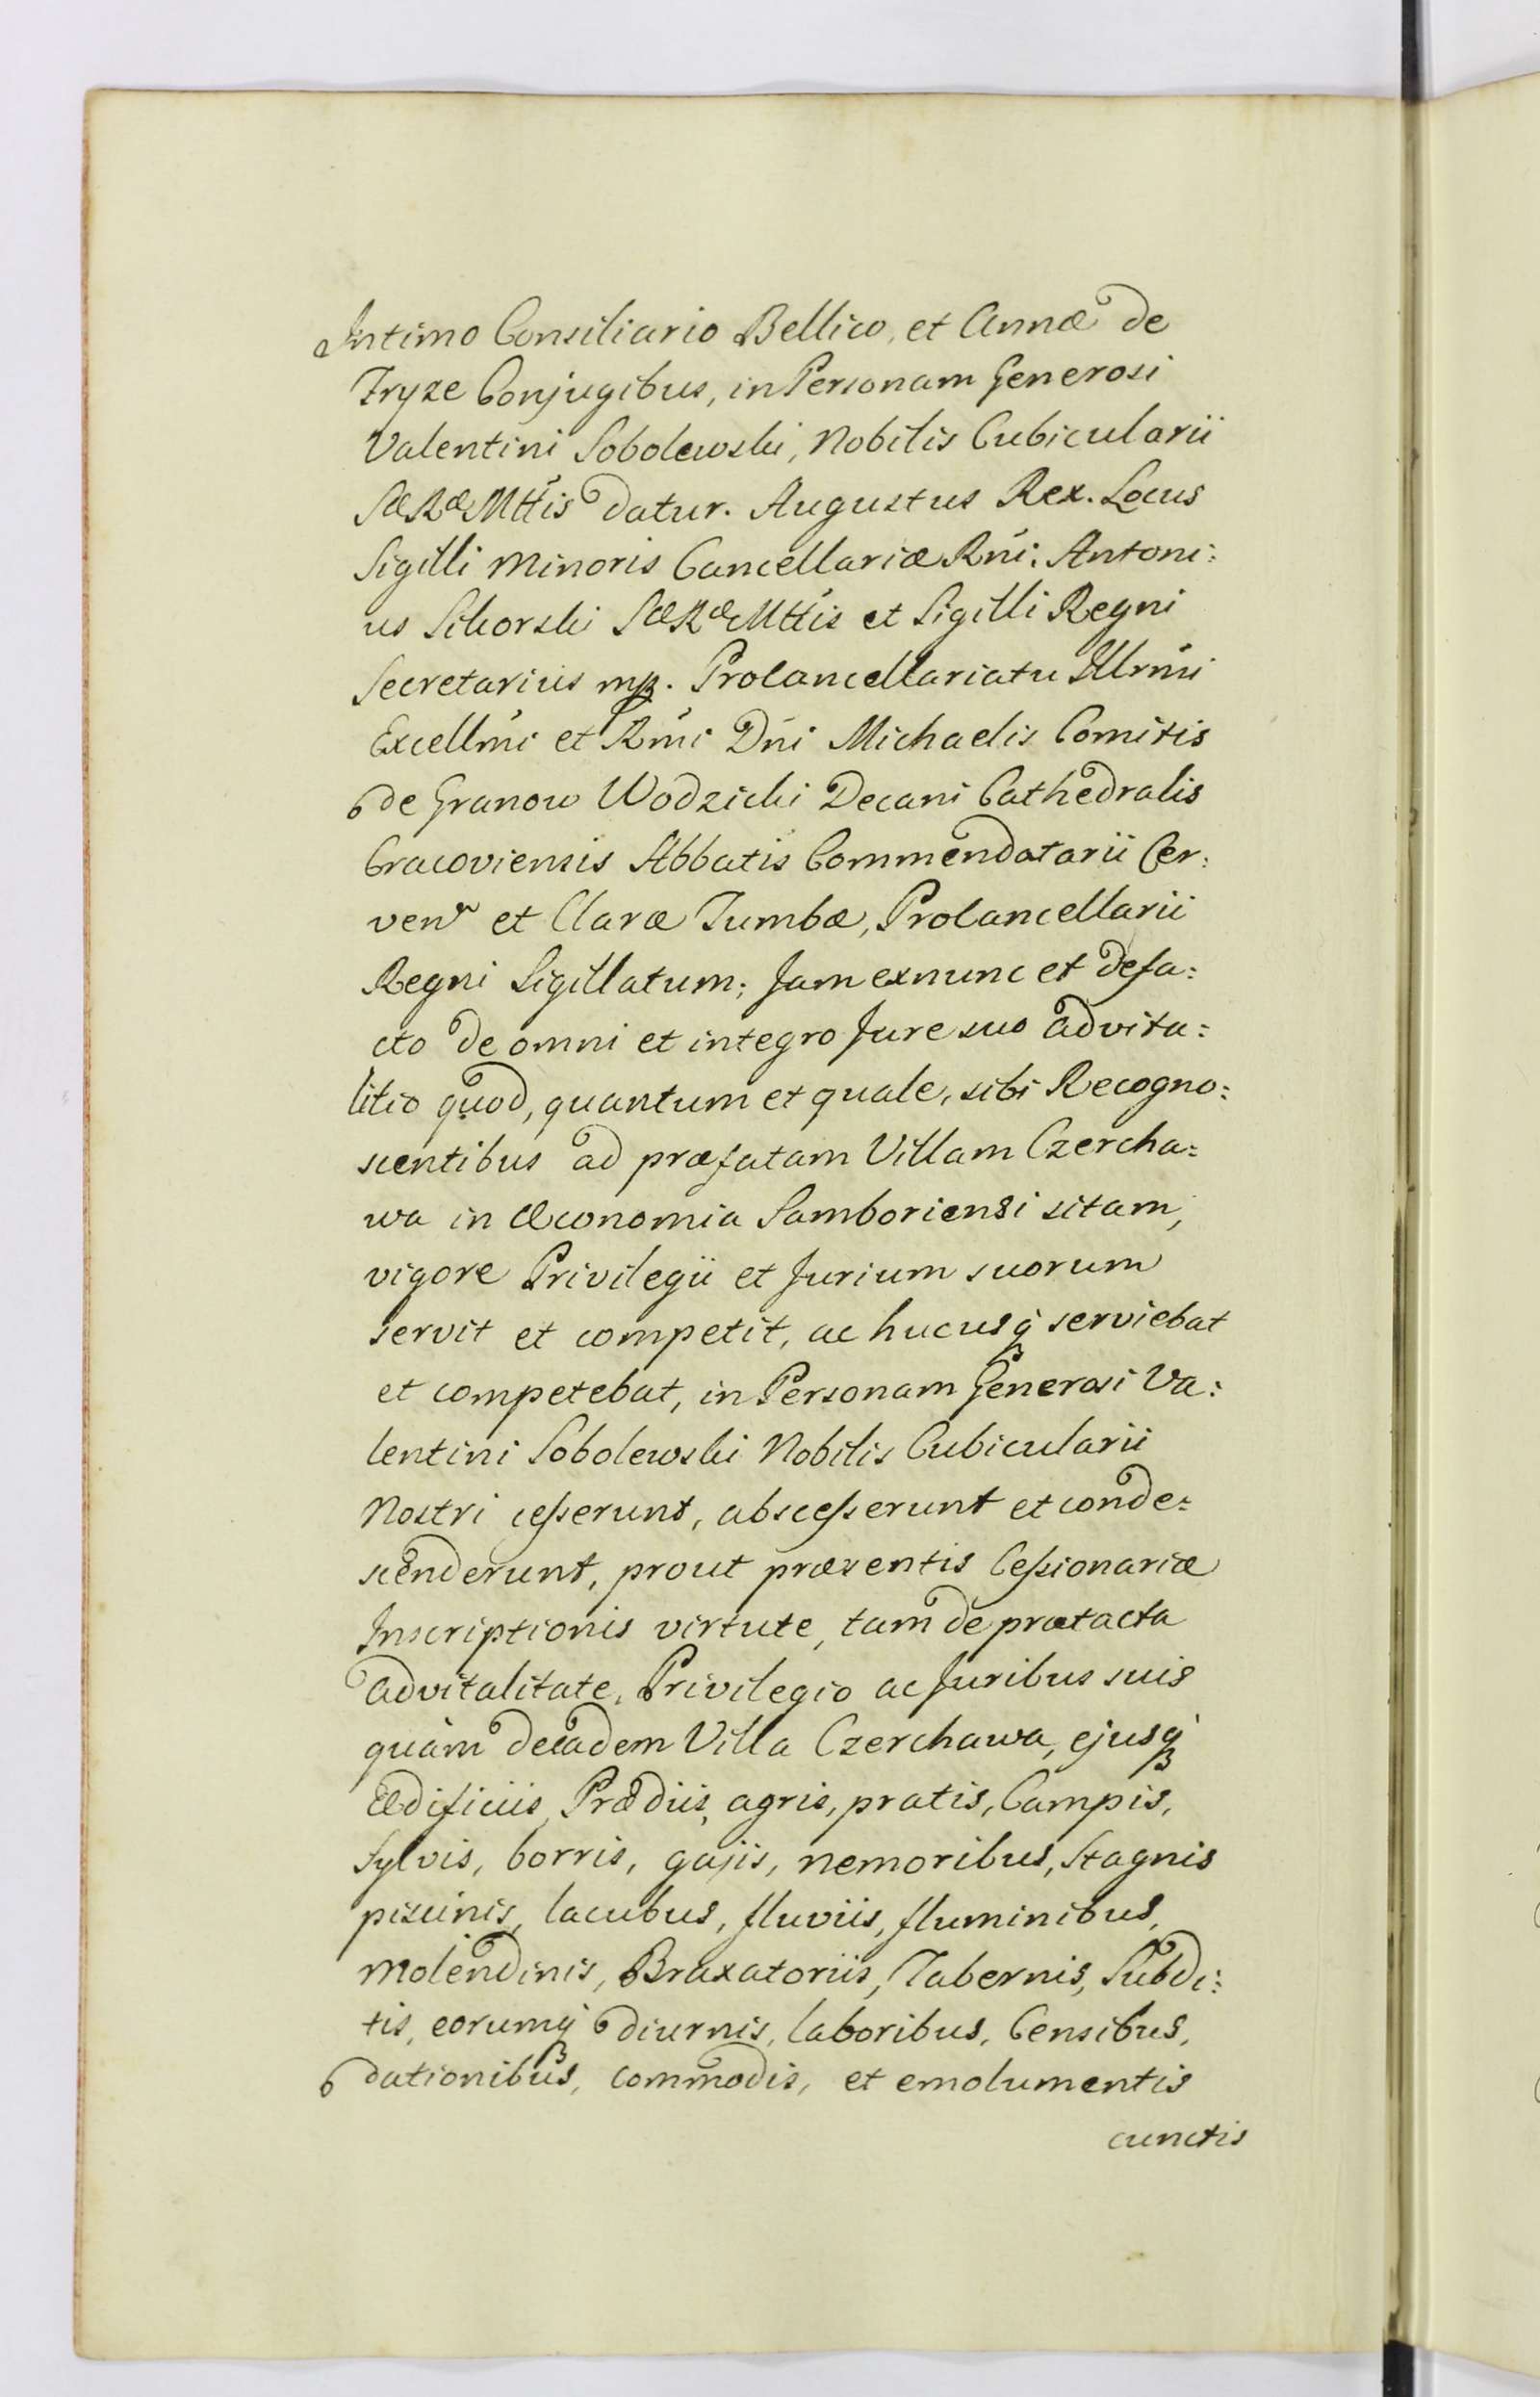 Intimo Consiliario Bellico, et Annæ de
Fryze Conjugibus, in Personam Generosi
Valentini Sobolewski, Nobilis Cubicularii
SæRæMttis datur. Augustus Rex. Locus
Sigilli Minoris Cancellariæ Rni. Antoni:
us Sikorski SæRæMttis et Sigilli Regni
Secretarius mp. Procancellariatu Illrmi
Excellmi et Rmi Dni Michaelis Comitis
de Granow Wodzicki Decani Cathedralis
Cracoviensis Abbatis Commendatarii Cer:
ven et Claræ Tumbæ, Procancellarii
Regni Sigillatum; Jam exnunc et defa:
cto de omni et integro Jure suo advita:
litio quod, quantum et quale, sibi Recogno:
scentibus ad præfatam Villam Czercha:
wa in Œconomia Samboriensi sitam,
vigore Privilegii et Jurium suorum
servit et competit, ac hucusq serviebat
et competebat, in Personam Generosi Va:
lentini Sobolewski Nobilis Cubicularii
Nostri cesserunt, abscesserunt et conde:
scenderunt, prout præsentis Cessionariæ
Inscriptionis virtute, tam de prætacta
advitalitate, Privilegio ac Juribus suis
quàm deeadem Villa Czerchawa, ejusq
Ædificiis, Prædiis, agris, pratis, Campis,
Sylvis, borris, gajis, nemoribus, Stagnis
piscinis, lacubus, fluviis, fluminibus,
Molendinis, Braxatoriis, Tabernis, Subdi:
tis, eorumq diurnis, laboribus, Censibus,
dationibus, commodis, et emolumentis
cunctis